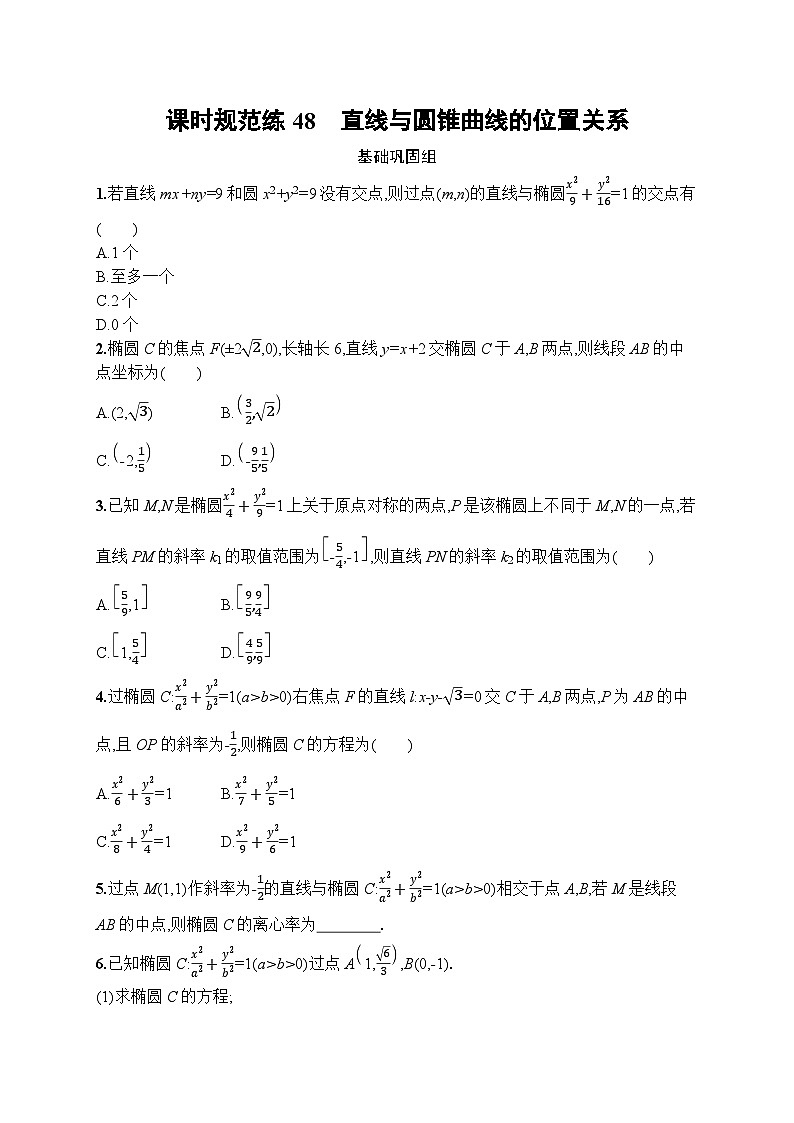 课时规范练 48　直线与圆锥曲线的位置关系
基础巩固组
1.若直线 mx+ny=9 和圆 x²+y²=9 没有交点,则过点(m,n)的直线与椭圆x²/9+y²/16=1 的交点有
(　　)
A.1 个
B.至多一个
C.2 个
D.0 个
2.椭圆 C 的焦点 F(±2√2,0),长轴长 6,直线 y=x+2 交椭圆 C 于 A,B 两点,则线段 AB 的中
点坐标为(　　)
A.(2,√3)　　B.(3/2,√2)
C.(-2,1/5)　　D.(-9/5,1/5)
3.已知 M,N 是椭圆x²/4+y²/9=1 上关于原点对称的两点,P 是该椭圆上不同于 M,N 的一点,若
直线 PM 的斜率 k₁ 的取值范围为[-5/4,-1],则直线 PN 的斜率 k₂ 的取值范围为(　　)
A.[5/9,1]　　B.[9/5,9/4]
C.[1,5/4]　　D.[4/9,5/9]
4.过椭圆 C:x²/a²+y²/b²=1(a>b>0)右焦点 F 的直线 l:x-y-√3=0 交 C 于 A,B 两点,P 为 AB 的中
点,且 OP 的斜率为-1/2,则椭圆 C 的方程为(　　)
A.x²/6+y²/3=1　　B.x²/7+y²/5=1
C.x²/8+y²/4=1　　D.x²/9+y²/6=1
5.过点 M(1,1)作斜率为-1/2的直线与椭圆 C:x²/a²+y²/b²=1(a>b>0)相交于点 A,B,若 M 是线段
AB 的中点,则椭圆 C 的离心率为________.
6.已知椭圆 C:x²/a²+y²/b²=1(a>b>0)过点 A(1,√6/3),B(0,-1).
(1)求椭圆 C 的方程;